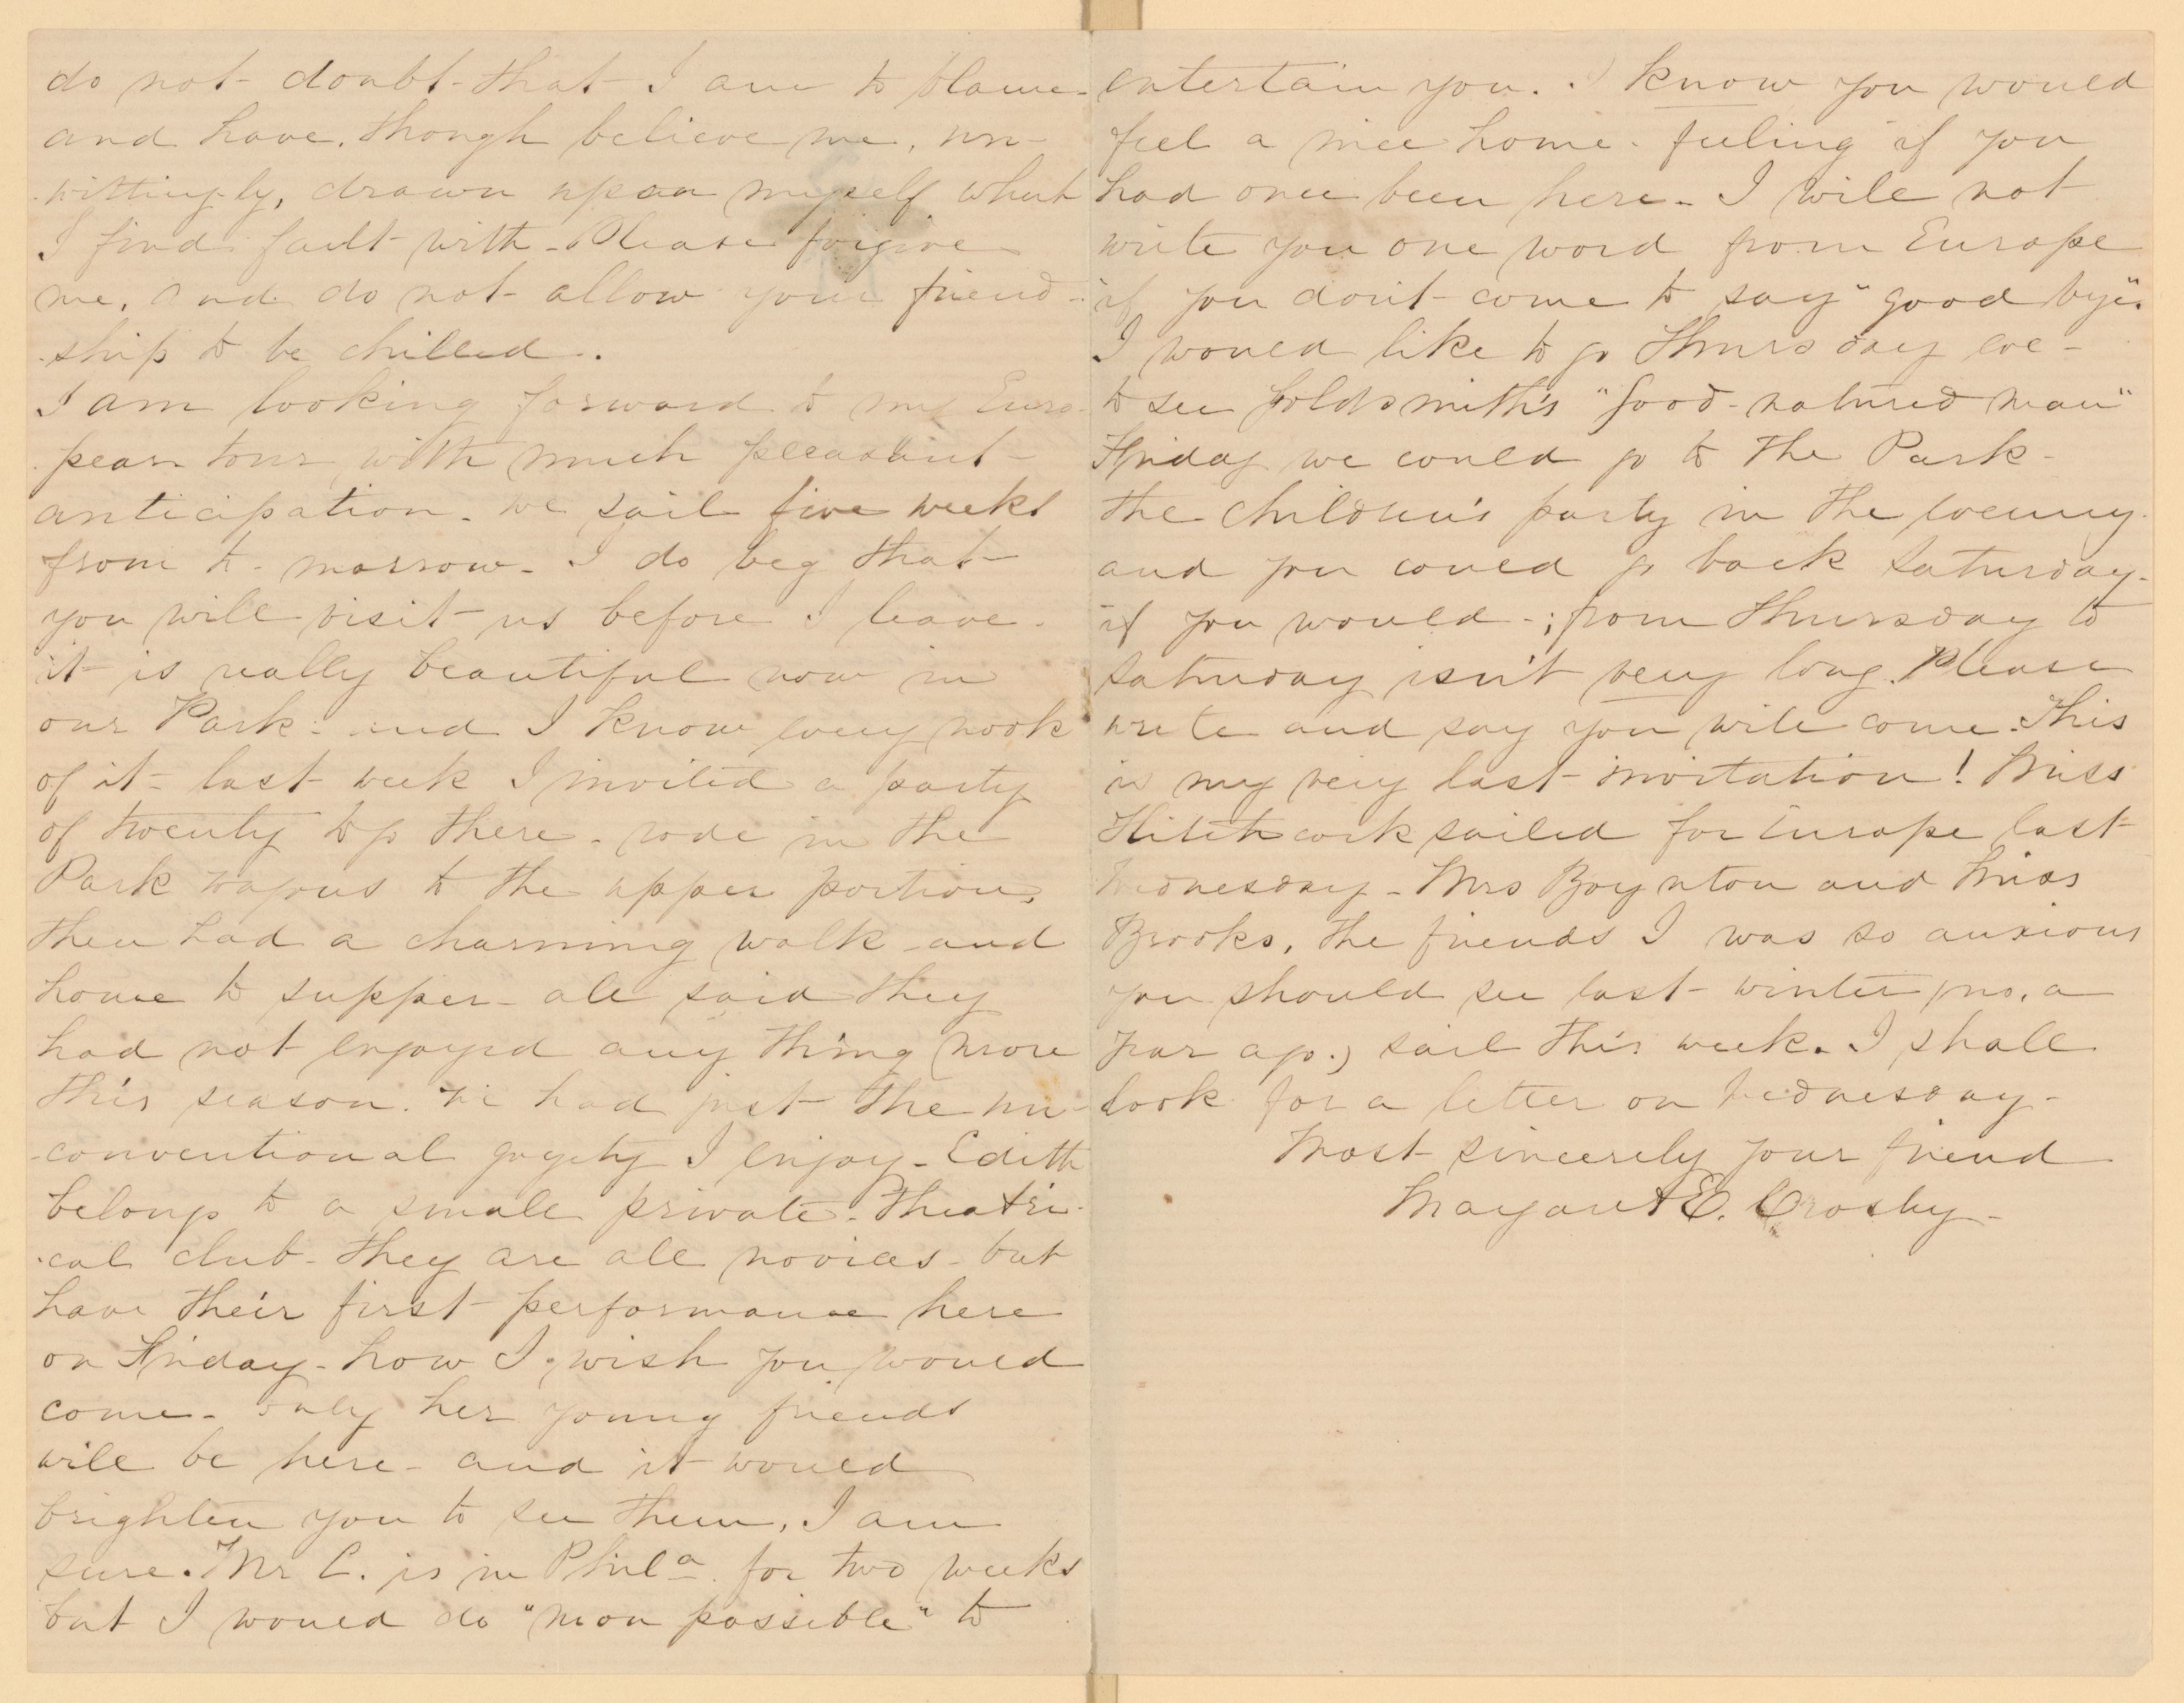 do not doubt that I am to blame
and have, though believe me, un-
wittingly, drawn upon myself what
I find fault with - Please forgive
me, and do not allow your friend-
ship to be chilled.
I am looking forward to my Euro-
pean tour with much pleasant
anticipation. We sail five weeks
from to-morrow - I do beg that
you will visit us before I leave.
it is really beautiful now in
our Park - and I know every nook
of it - last week I invited a party
of twenty to go there - rode in the
Park wagons to the upper portion,
then had a charming walk and
home to supper - all said they
had not enjoyed any thing more
this season. We had just the un-
conventional gayety I enjoy - Edith
belongs to a small private-theatri-
cal club - they are all novices - but
have their first performance here
on Friday - how I wish you would
come - only her young friends
will be here - and it would
brighten you to see them, I am
sure. Mr C. is in Phila. for two weeks
but I would do "mon possible" to
entertain you. I know you would
feel a nice home-feeling if you
had once been here - I will not
write you one word from Europe
if you don't come to say "good bye".
I would like to go Thursday eve-
to see Goldsmith's "Good-natured man"
Friday we could go to the Park -
the children's party in the evening
and you could go back Saturday -
if you would - ; from Thursday to
Saturday isn't very long. Please
write and say you will come. This
is my very last invitation! Miss
Hitchcock sailed for Europe last
Wednesday - Mrs Boynton and Miss
Brooks, the friends I was so anxious
you should see last winter (no, a
year ago.) sail this week. I shall
look for a letter on Wednesday -
Most sincerely your friend
Margaret E. Crosby -